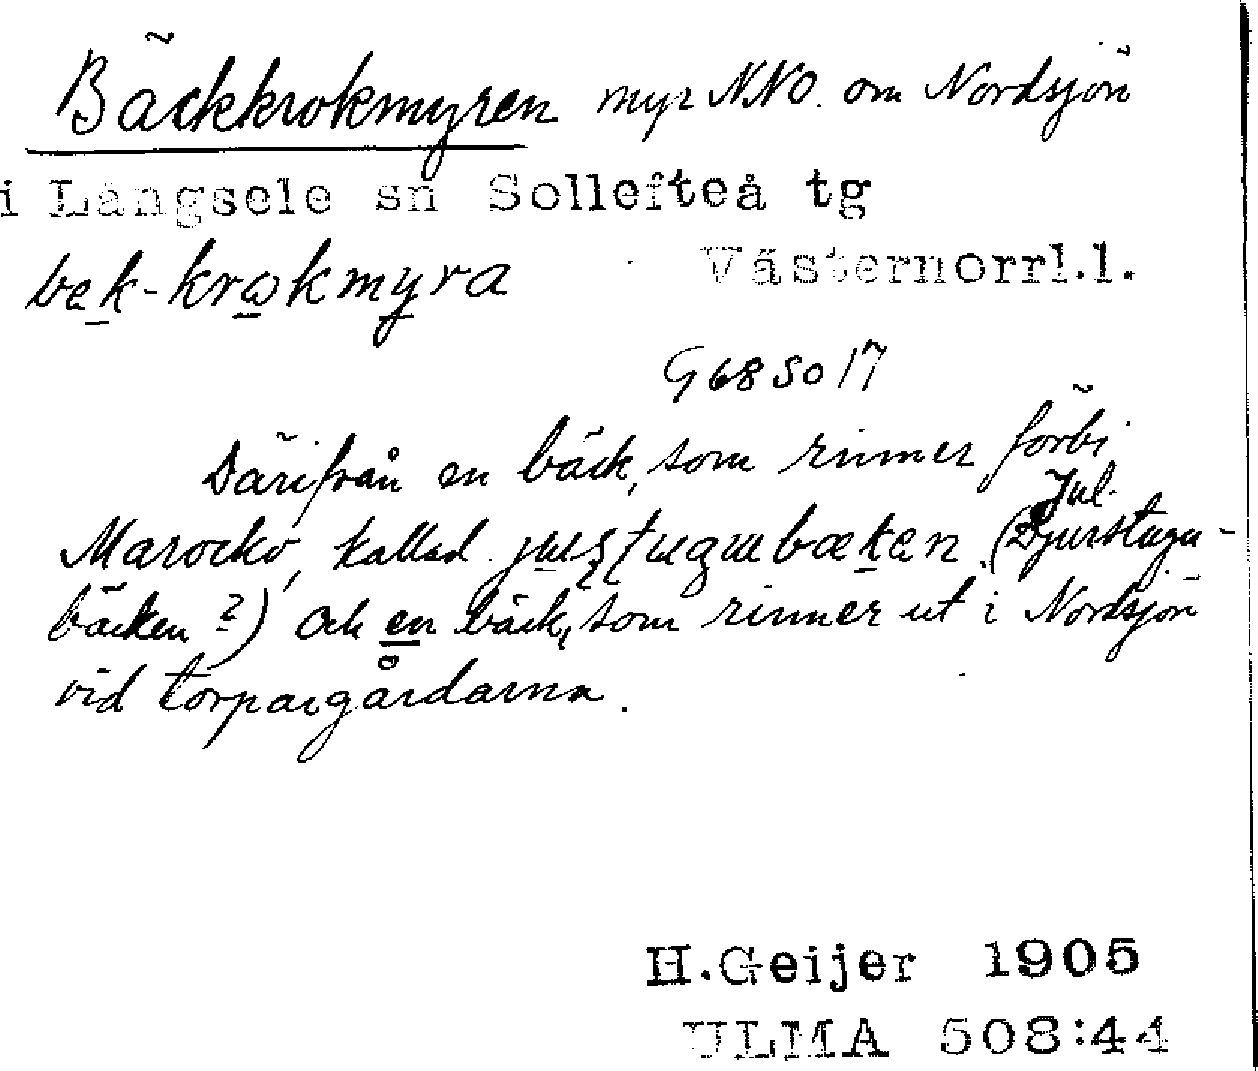 Bäckkrokmyren myr NNO. om Nordsjön
i Långsele sn Sollefteå tg
bek-krokmyra Västernorrl.l.
G 68 So 17
Därifrån en bäck, som rinner förbi
Marocko, kallad (Jul. Djurstugu-
bäcken ?) och en bäck, som rinner ut i Nordsjön
vid torpargårdarna.
H.Geijer 1905
ULMA 508:44